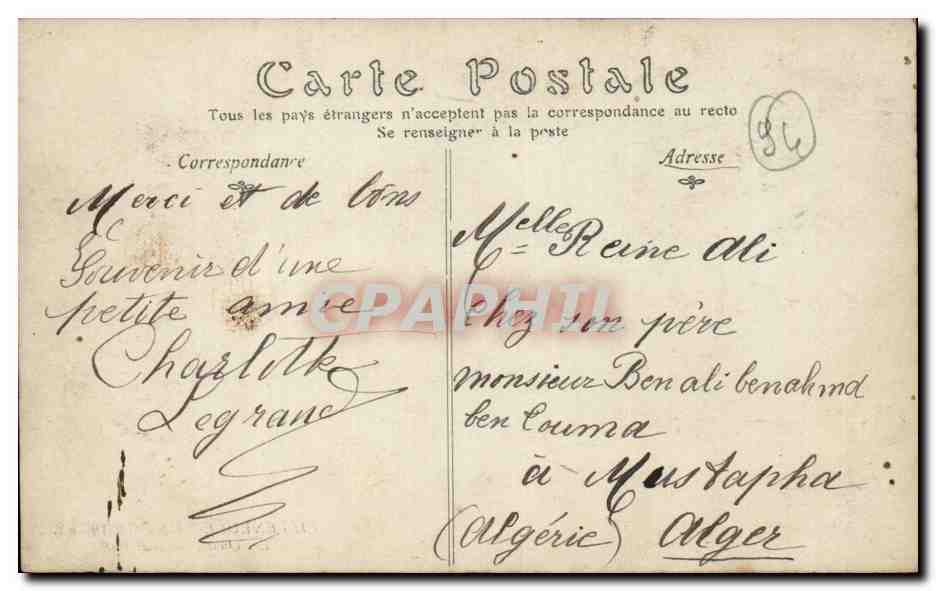 Carte Postale
Tous les pays étrangers n'acceptent pas la correspondance au recto
Se renseigner à la poste
Correspondance
Adresse
94
Merci et de bons
Souvenir d'une
petite amie
Charlotte
Legrand
Melle Reine Ali
Chez son père
monsieur Ben ali benahmd
ben Couma
à Mustapha
(Algérie) Alger
CPAPHIL